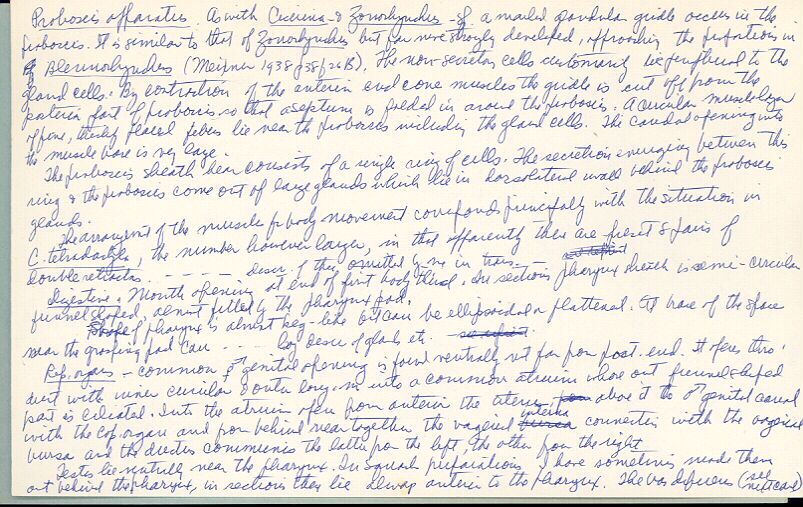 Proboscis apparatus. As with Cicerina & Zonorhynchus - a marked glandular girdle occurs in the
proboscis. It is similar to that of Zonorhynchus but far more strongly developed, approaching the proportions in
Blennorhynchus (Meixner 1938 p 38 f 26B). The non-secretory cells customarily lie peripheral to the
gland cells. By contraction of the anterior end cone muscles the girdle is cut off from the
posterior part of proboscis so that a septum is folded in around the proboscis. A circular muscle layer
of fine, thickly placed fibers lie near the proboscis including the gland cells. The caudal opening into
the muscle bore is very large.
The proboscis sheath here consists of a single ring of cells. The secretion emerging between this
ring & the proboscis come out of large glands which lie in dorsolateral wall behind the proboscis
glands.
The arrangement of the muscle for body movement corresponds principally with the situation in
C. tetradactyla, the number however larger, in that apparently there are present 8 pairs of
double retractors. - - - - - descr. of they omitted by me in trans-
Digestive. Mouth opening at end of first body third. In sections pharynx sheath is semi-circular
funnel shaped, almost filled by the pharynx
Shape of pharynx is almost keg-like but can be ellipsoidal or flattened. At base of the space
near the grasping pad can - - - long descr of glands etc.
Rep. organs - common ♂ genital opening is found ventrally not far from post. end. It opens thro'
duct with inner circular & outer long. m. into a common atrium whose out funnel shaped
part is ciliated. Into the atrium open from anterior the uterus above it the ♂ genital canal
with the cop. organ and from behind near together the vaginal interna connection with the vaginal
bursa and the ductus communis the latter from the left, the other from the right
Testes lie ventrally near the pharynx. In squash preparations I have sometimes made them
out behind the pharynx, in sections they lie always anterior to the pharynx. The vas deferens (see next card)